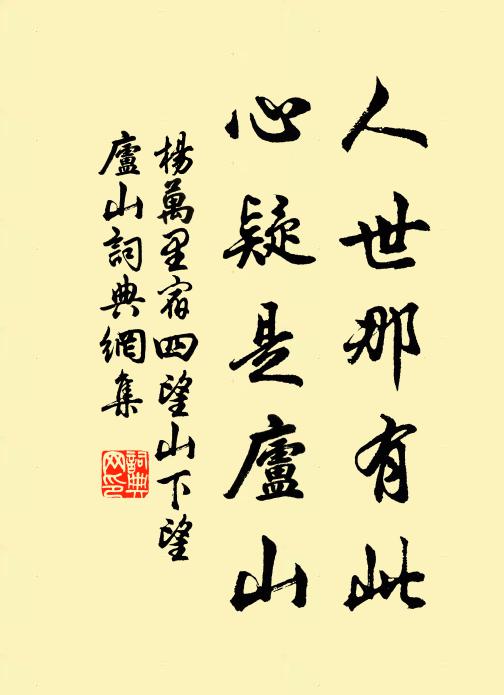 人世那有此
心疑是廬山
楊萬里宿四望山下望
廬山詞典網集
詞典
网印